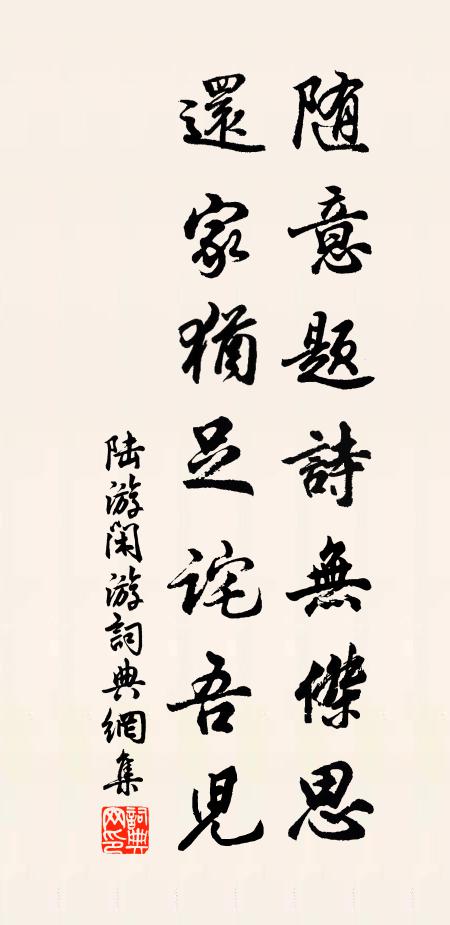 随意題詩無傑思
還家猶足詫吾兒
陆游闲游詞典網集
詞典网印